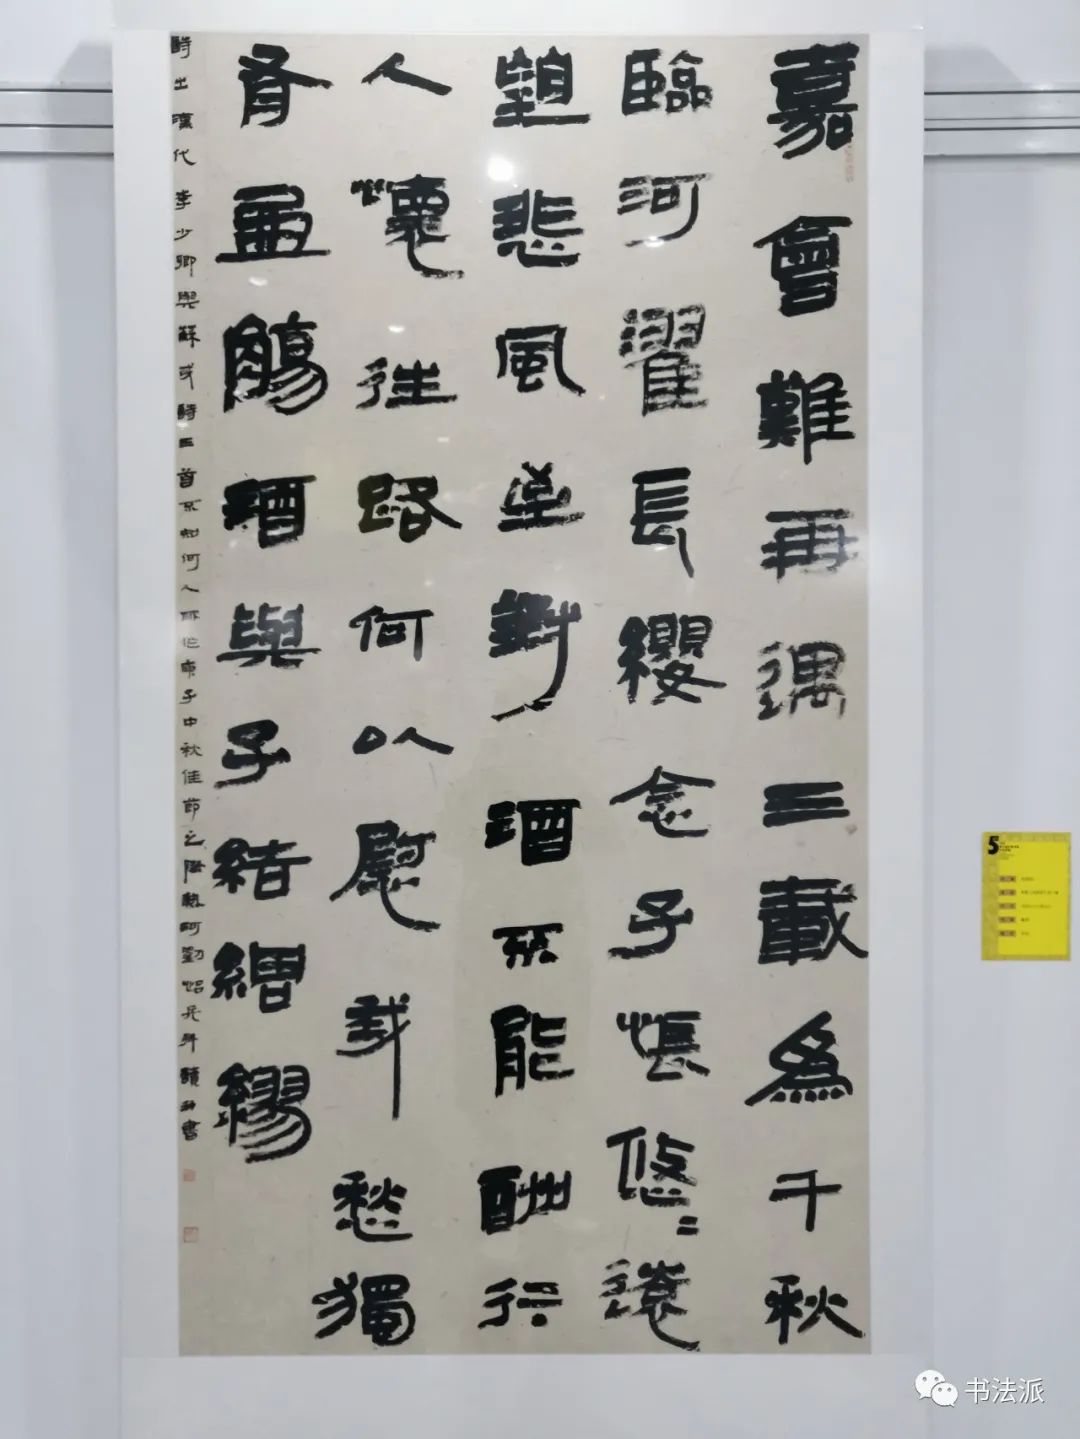 嘉會難再遇三載爲千秋
臨河濯長纓念子悵悠〻遠
望悲風至對酒不能酬行
人懷往路何以慰我愁獨
有盈觴酒與子結綢繆
詩出漢代李少卿與蘇武詩三首不知何人所作庚子中秋佳節之際熱河劉兵拜讀并書
5
书法派